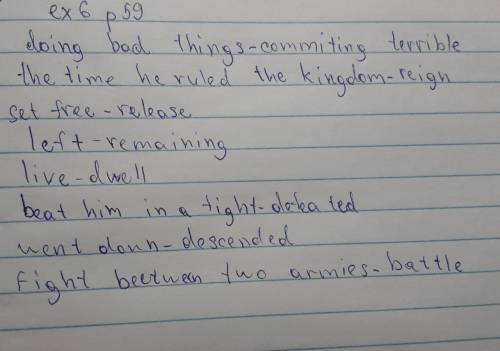 ex 6 p 59
doing bad things-commiting terrible
the time he ruled the kingdom-reign
set free-release
left-remaining
live-dwell
beat him in a tight-defeated
went down-descended
fight beetween two armies-battle